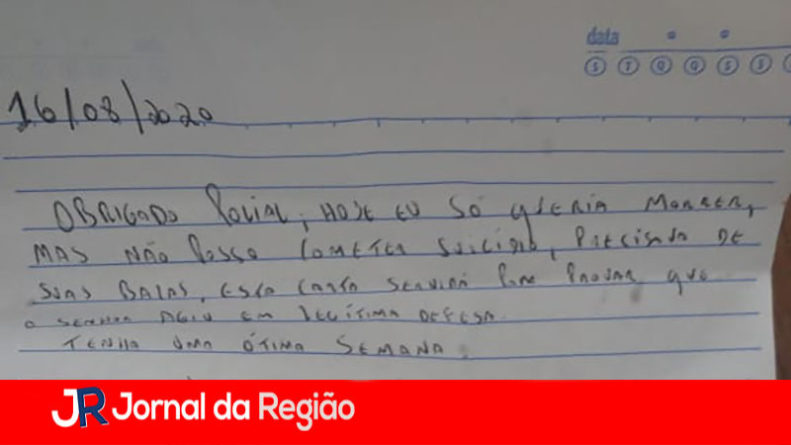 data
S T Q Q S S
16/08/2020
OBRIGADO POLICIAL, HOJE EU SÓ QUERIA MORRER,
MAS NÃO POSSO COMETER SUICÍDIO, PRECISAVA DE
SUAS BALAS. ESTA CARTA SERVIRÁ PARA PROVAR QUE
O SENHOR AGIU EM LEGÍTIMA DEFESA.
TENHA UMA ÓTIMA SEMANA.
JR Jornal da Região